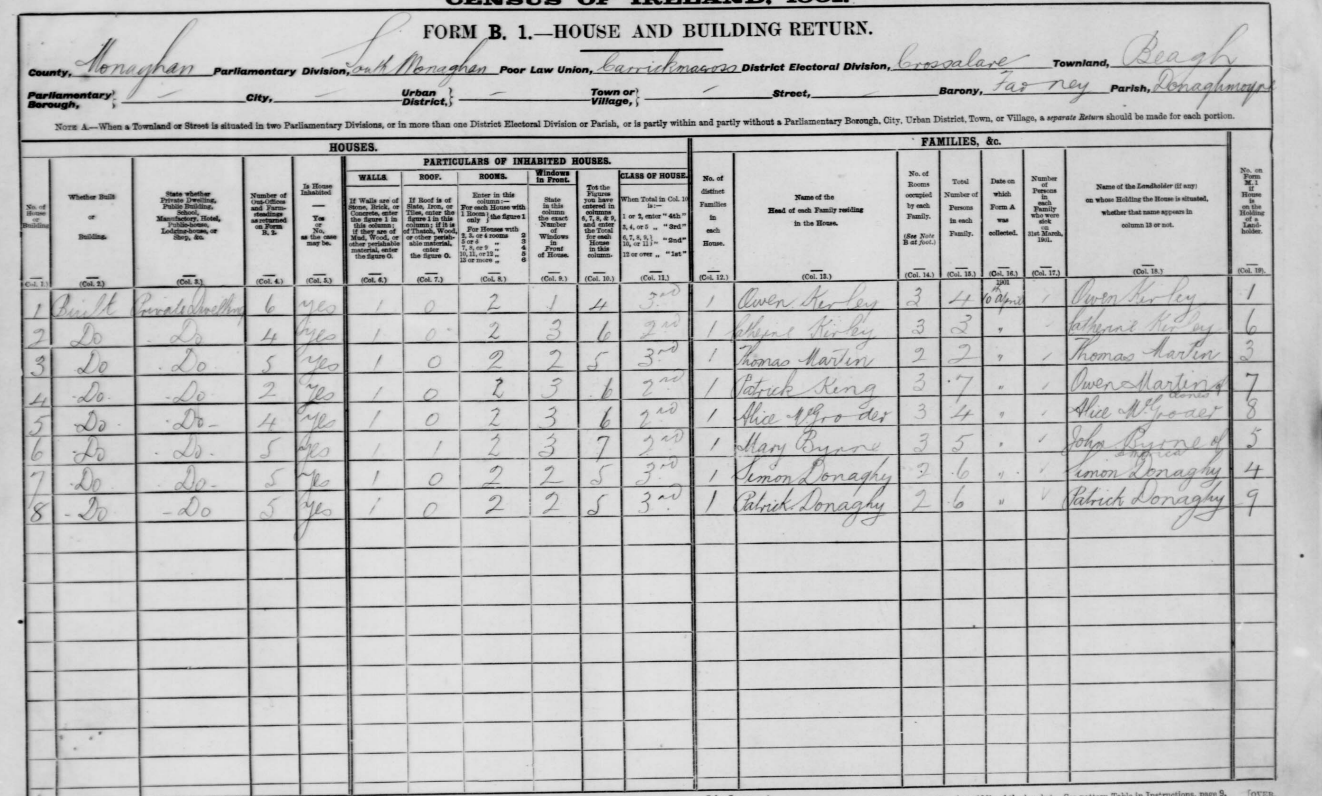 CENSUS OF IRELAND, 1901.
FORM B. 1.—HOUSE AND BUILDING RETURN.
County, Monaghan Parliamentary Division, South Monaghan Poor Law Union, Carrickmacross District Electoral Division, Crossalare Townland, Beagh
Parliamentary Borough, — City, — Urban District, — Town or Village, — Street, — Barony, Farney Parish, Donaghmoyne
NOTE A.—When a Townland or Street is situated in two Parliamentary Divisions, or in more than one District Electoral Division or Parish, or is partly within and partly without a Parliamentary Borough, City, Urban District, Town, or Village, a separate Return should be made for each portion.
HOUSES. FAMILIES, &c.
PARTICULARS OF INHABITED HOUSES.
WALLS. ROOF. ROOMS. Windows in Front. CLASS OF HOUSE.
No. of House or Building
Whether Built or Building.
State whether Private Dwelling, Public Building, School, Manufactory, Hotel, Public-house, Lodging-house, or Shop, &c.
Number of Out-Offices and Farm-steadings as returned on Form B. 2.
Is House Inhabited — Yes or No, as the case may be.
If Walls are of Stone, Brick, or Concrete, enter the figure 1 in this column; if they are of Mud, Wood, or other perishable material, enter the figure 0.
If Roof is of Slate, Iron, or Tiles, enter the figure 1 in this column; if it is of Thatch, Wood, or other perishable material, enter the figure 0.
Enter in this column:— For each House with 1 Room only the figure 1 For Houses with 2, 3, or 4 rooms 2 5 or 6 „ 3 7, 8, or 9 „ 4 10, 11, or 12 „ 5 13 or more „ 6
State in this column the exact Number of Windows in Front of House.
Tot the Figures you have entered in columns 6, 7, 8, & 9, and enter the Total for each House in this column.
When Total in Col. 10 is:— 1 or 2, enter "4th" 3, 4, or 5 „ "3rd" 6, 7, 8, 9, 10, or 11 „ "2nd" 12 or over „ "1st"
No. of distinct Families in each House.
Name of the Head of each Family residing in the House.
No. of Rooms occupied by each Family. (See Note B at foot.)
Total Number of Persons in each Family.
Date on which Form A was collected.
Number of Persons in each Family who were sick on 31st March, 1901.
Name of the Landholder (if any) on whose Holding the House is situated, whether that name appears in column 13 or not.
No. on Form M. 1 if House is on the Holding of a Land-holder.
(Col. 1.) (Col. 2.) (Col. 3.) (Col. 4.) (Col. 5.) (Col. 6.) (Col. 7.) (Col. 8.) (Col. 9.) (Col. 10.) (Col. 11.) (Col. 12.) (Col. 13.) (Col. 14.) (Col. 15.) (Col. 16.) (Col. 17.) (Col. 18.) (Col. 19).
1901
1 Built Private Dwelling 6 yes 1 0 2 1 4 3rd 1 Owen Kirley 3 4 10th April Owen Kirley 1
2 Do Do 4 yes 1 0 2 3 6 2nd 1 Catherine Kirley 3 3 „ Catherine Kirley 6
3 Do Do 5 yes 1 0 2 2 5 3rd 1 Thomas Martin 2 2 „ Thomas Martin 3
4 Do Do 2 yes 1 0 2 3 6 2nd 1 Patrick King 3 7 „ Owen Martin of 7
5 Do Do 4 yes 1 0 2 3 6 2nd 1 Alice McGroder 3 4 „ Alice McGroder 8
6 Do Do 5 yes 1 1 2 3 7 2nd 1 Mary Byrne 3 5 „ John Byrne of America 5
7 Do Do 5 yes 1 0 2 2 5 3rd 1 Simon Donaghy 2 6 „ Simon Donaghy 4
8 Do Do 5 yes 1 0 2 2 5 3rd 1 Patrick Donaghy 2 6 „ Patrick Donaghy 9
Table in Instructions, page 9. [OVER